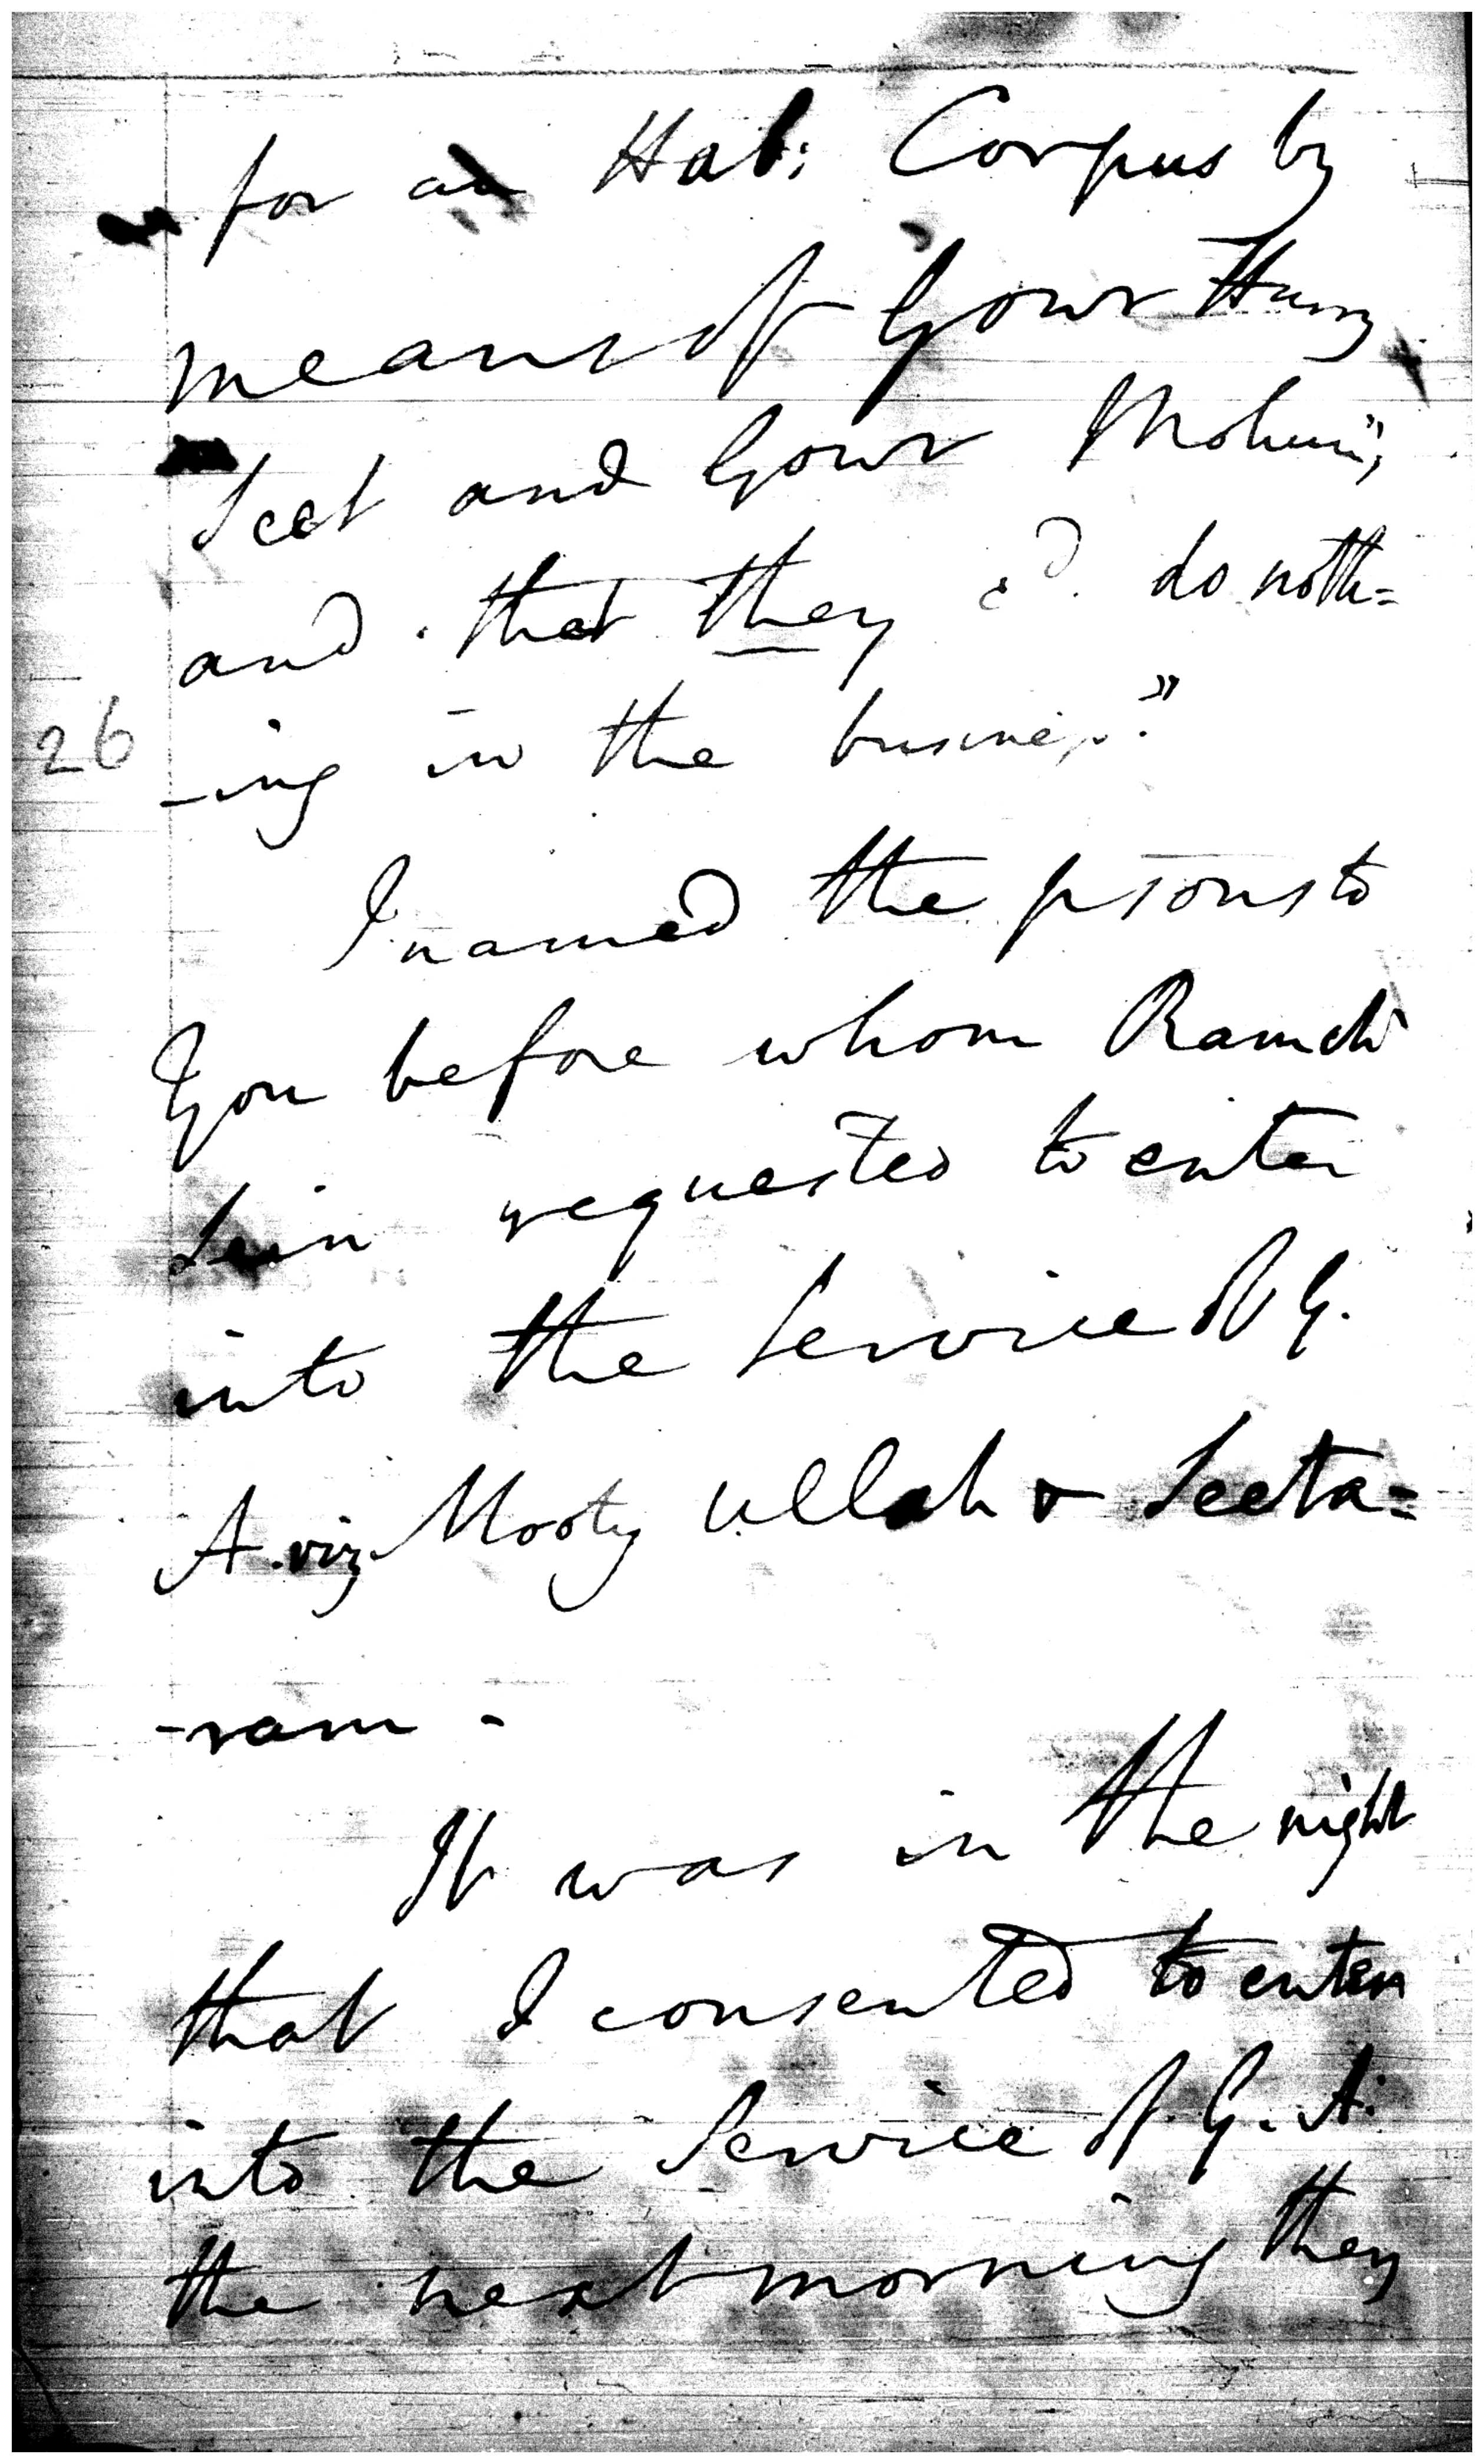 for a Hab: Corpus by
means of Gour Hurry
Seel and Gour Mohun",
and that they cd. do noth=
26
-ing in the business."
I named the psons to
You before whom Ramdi
Sein requested to enter
into the Service of G.
A. viz. Mooty ullah & Seeta=
-ram -
It was in the night
that I consented to enter
into the Service of G. A.
the next morning they